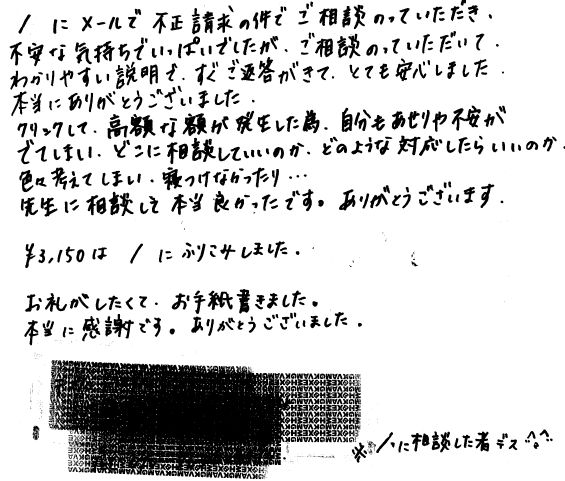 / にメールで不正請求の件でご相談のっていただき、
不安な気持ちでいっぱいでしたが、ご相談のっていただいて、
わかりやすい説明で、すぐご返答がきて、とても安心しました.
本当にありがとうございました.
クリックして、高額な額が発生した為、自分もあせりや不安が
でてしまい、どこに相談していいのか、どのような対応したらいいのか、
色々考えてしまい、寝つけなかったり…
先生に相談して本当良かったです。ありがとうございます.
¥3,150は / にふりこみしました.
お礼がしたくて、お手紙書きました。
本当に感謝です。ありがとうございました.
/ に相談した者デス